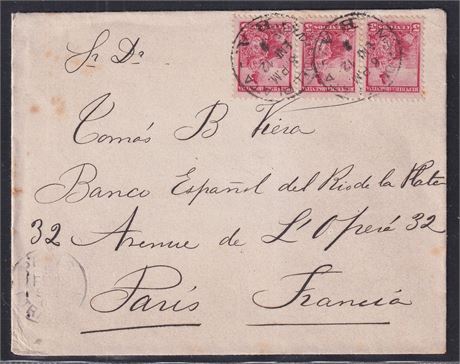 Sr Dr
Tomás B Viera
Banco Español del Rio de la Plata
32 Avenue de L'Opéra 32
París Francia